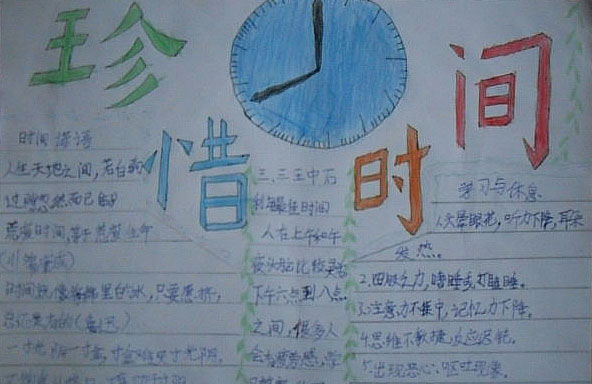 珍惜时间
时间谚语
人生天地之间,若白驹
过隙忽然而已
时间就像海绵里的水,只要愿挤,
总还是有的(鲁迅)
一寸光阴一寸金,寸金难买寸光阴。
三、三五中右
利用最佳时间
人在上午和午
夜头脑比较灵
下午六点到八点
之间,很多人
会有疲劳感,学
学习与休息
1、头晕眼花,听力下降,耳朵
发热。
2.四肢乏力,嗜睡或打瞌睡。
3.注意力不集中,记忆力下降。
4.思维不敏捷,反应迟钝。
5.出现恶心、呕吐现象。